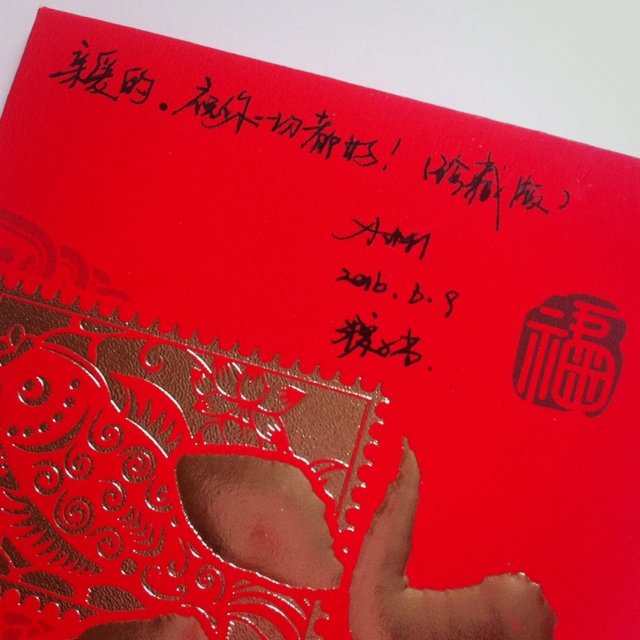 亲爱的。祝你一切都好！（珍藏版）
2016.6.9
福